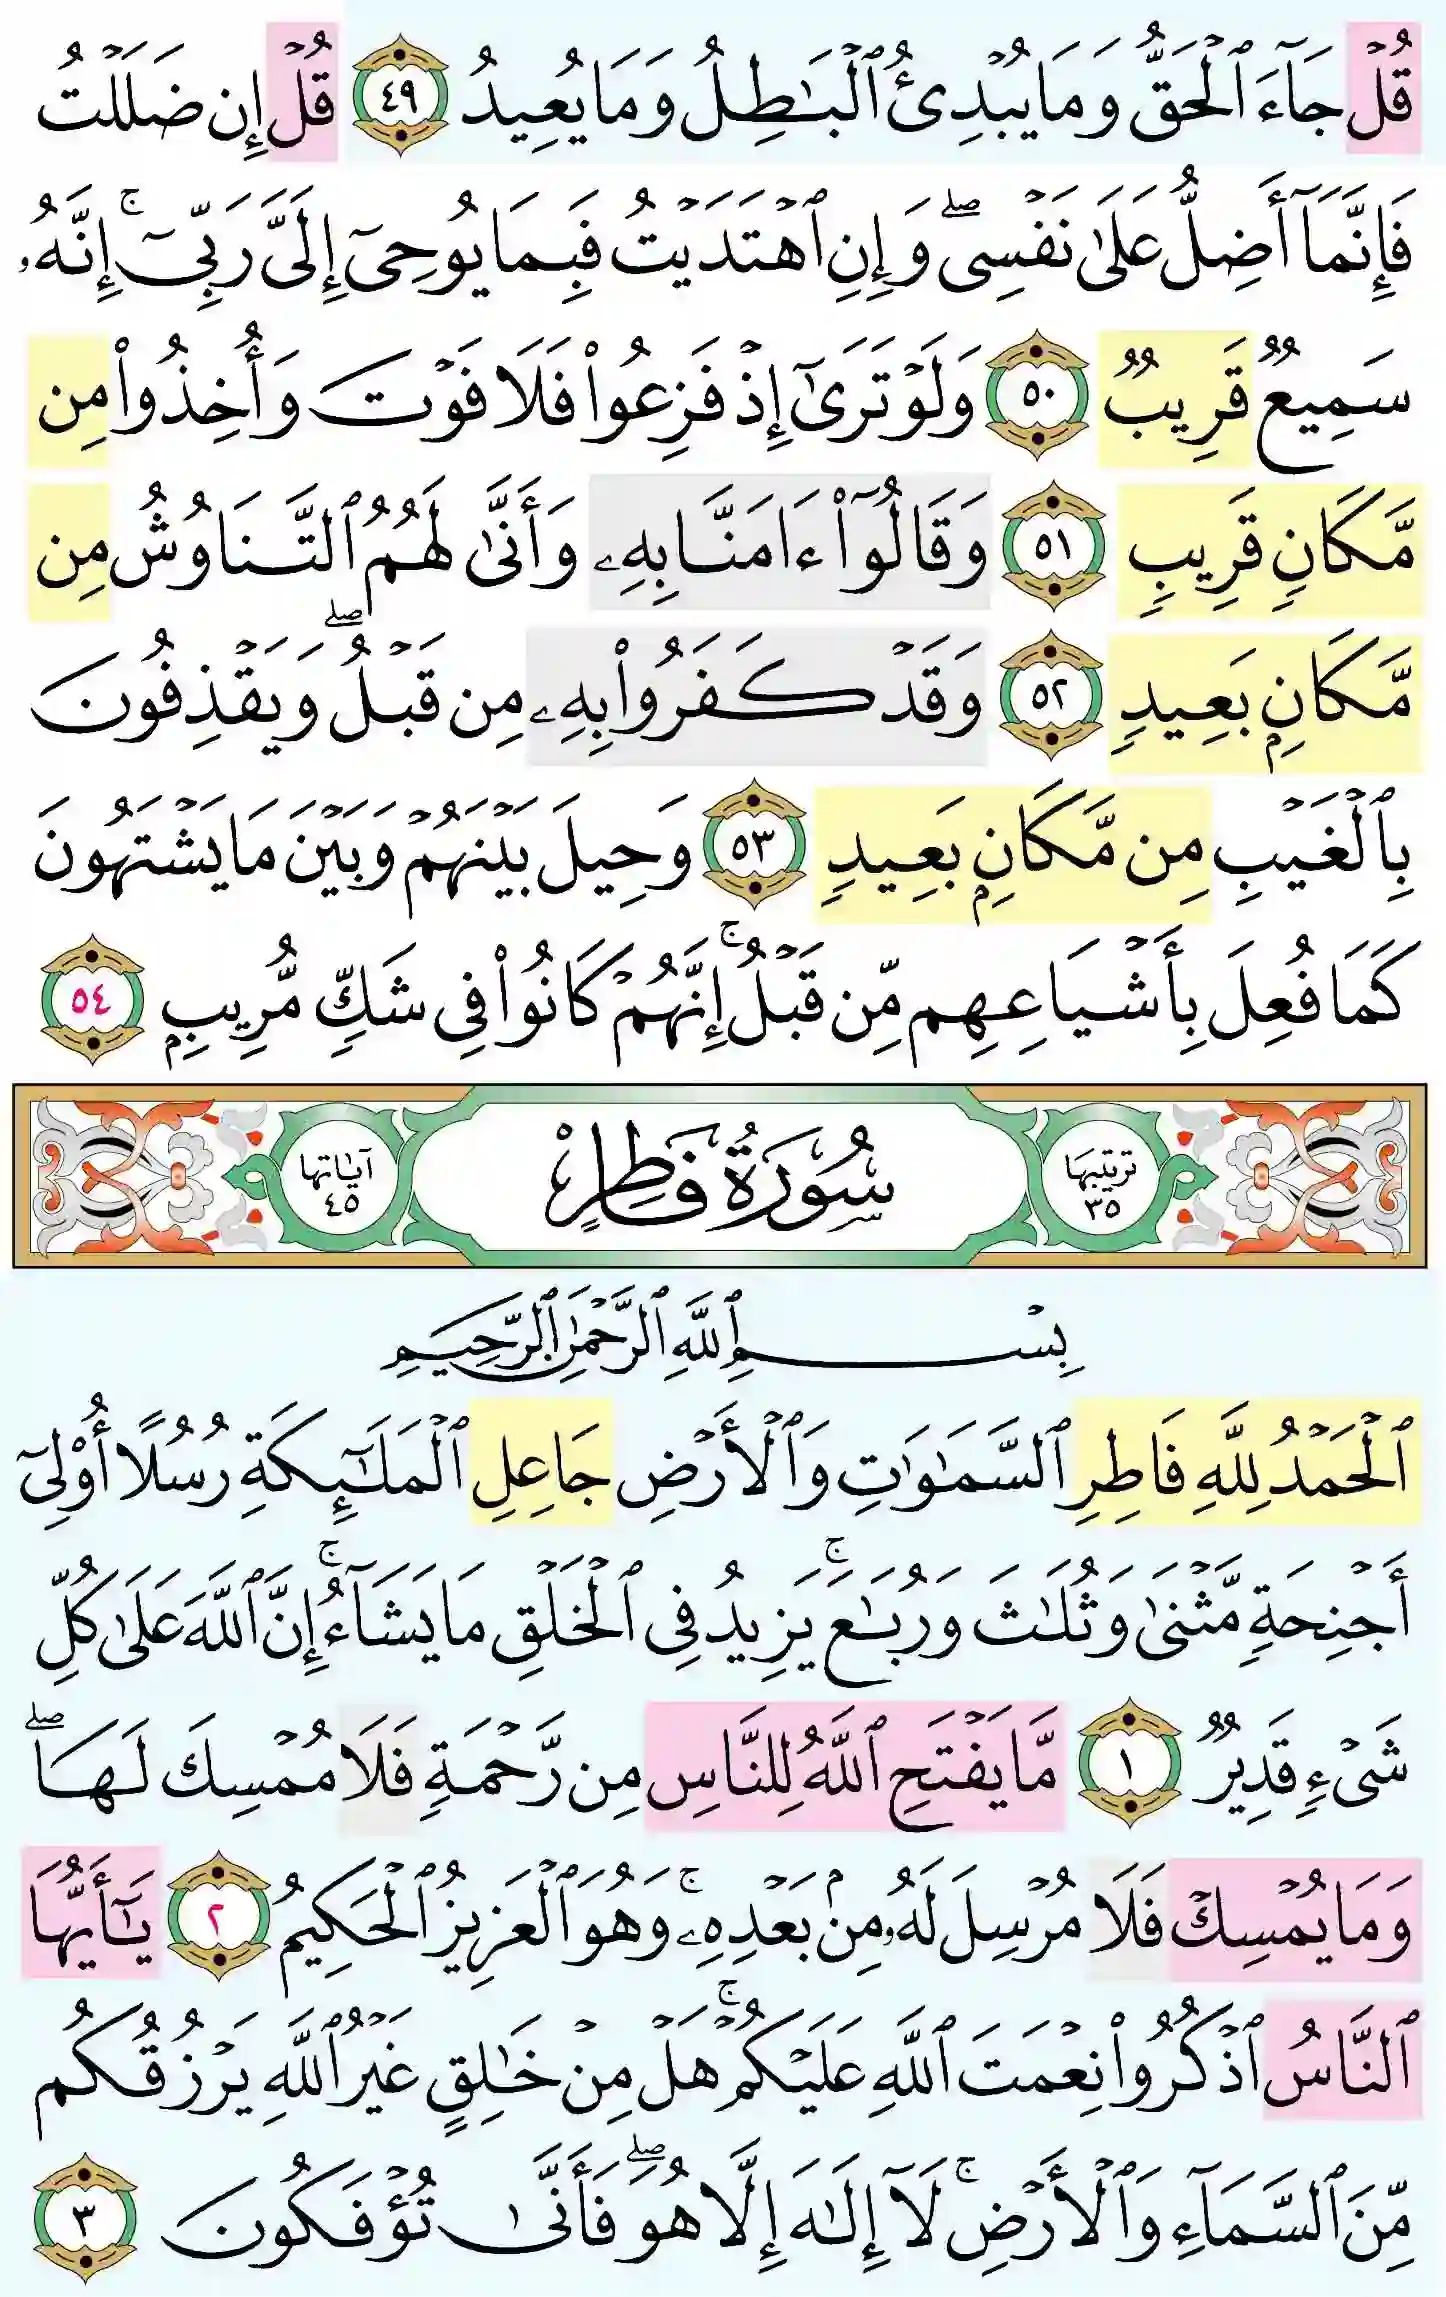 قُلۡ جَآءَ ٱلۡحَقُّ وَمَا يُبۡدِئُ ٱلۡبَٰطِلُ وَمَا يُعِيدُ ٤٩ قُلۡ إِن ضَلَلۡتُ
فَإِنَّمَآ أَضِلُّ عَلَىٰ نَفۡسِيۖ وَإِنِ ٱهۡتَدَيۡتُ فَبِمَا يُوحِيٓ إِلَيَّ رَبِّيٓۚ إِنَّهُۥ
سَمِيعٞ قَرِيبٞ ٥٠ وَلَوۡ تَرَىٰٓ إِذۡ فَزِعُواْ فَلَا فَوۡتَ وَأُخِذُواْ مِن
مَّكَانٖ قَرِيبٖ ٥١ وَقَالُوٓاْ ءَامَنَّا بِهِۦ وَأَنَّىٰ لَهُمُ ٱلتَّنَاوُشُ مِن
مَّكَانِۭ بَعِيدٖ ٥٢ وَقَدۡ كَفَرُواْ بِهِۦ مِن قَبۡلُۖ وَيَقۡذِفُونَ
بِٱلۡغَيۡبِ مِن مَّكَانِۭ بَعِيدٖ ٥٣ وَحِيلَ بَيۡنَهُمۡ وَبَيۡنَ مَا يَشۡتَهُونَ
كَمَا فُعِلَ بِأَشۡيَاعِهِم مِّن قَبۡلُۚ إِنَّهُمۡ كَانُواْ فِي شَكّٖ مُّرِيبِۭ ٥٤
ترتيبها ٣٥ سُورَةُ فَاطِرٍ آياتها ٤٥
بِسۡمِ ٱللَّهِ ٱلرَّحۡمَٰنِ ٱلرَّحِيمِ
ٱلۡحَمۡدُ لِلَّهِ فَاطِرِ ٱلسَّمَٰوَٰتِ وَٱلۡأَرۡضِ جَاعِلِ ٱلۡمَلَٰٓئِكَةِ رُسُلًا أُوْلِيٓ
أَجۡنِحَةٖ مَّثۡنَىٰ وَثُلَٰثَ وَرُبَٰعَۚ يَزِيدُ فِي ٱلۡخَلۡقِ مَا يَشَآءُۚ إِنَّ ٱللَّهَ عَلَىٰ كُلِّ
شَيۡءٖ قَدِيرٞ ١ مَّا يَفۡتَحِ ٱللَّهُ لِلنَّاسِ مِن رَّحۡمَةٖ فَلَا مُمۡسِكَ لَهَاۖ
وَمَا يُمۡسِكۡ فَلَا مُرۡسِلَ لَهُۥ مِنۢ بَعۡدِهِۦۚ وَهُوَ ٱلۡعَزِيزُ ٱلۡحَكِيمُ ٢ يَٰٓأَيُّهَا
ٱلنَّاسُ ٱذۡكُرُواْ نِعۡمَتَ ٱللَّهِ عَلَيۡكُمۡۚ هَلۡ مِنۡ خَٰلِقٍ غَيۡرُ ٱللَّهِ يَرۡزُقُكُم
مِّنَ ٱلسَّمَآءِ وَٱلۡأَرۡضِۚ لَآ إِلَٰهَ إِلَّا هُوَۖ فَأَنَّىٰ تُؤۡفَكُونَ ٣